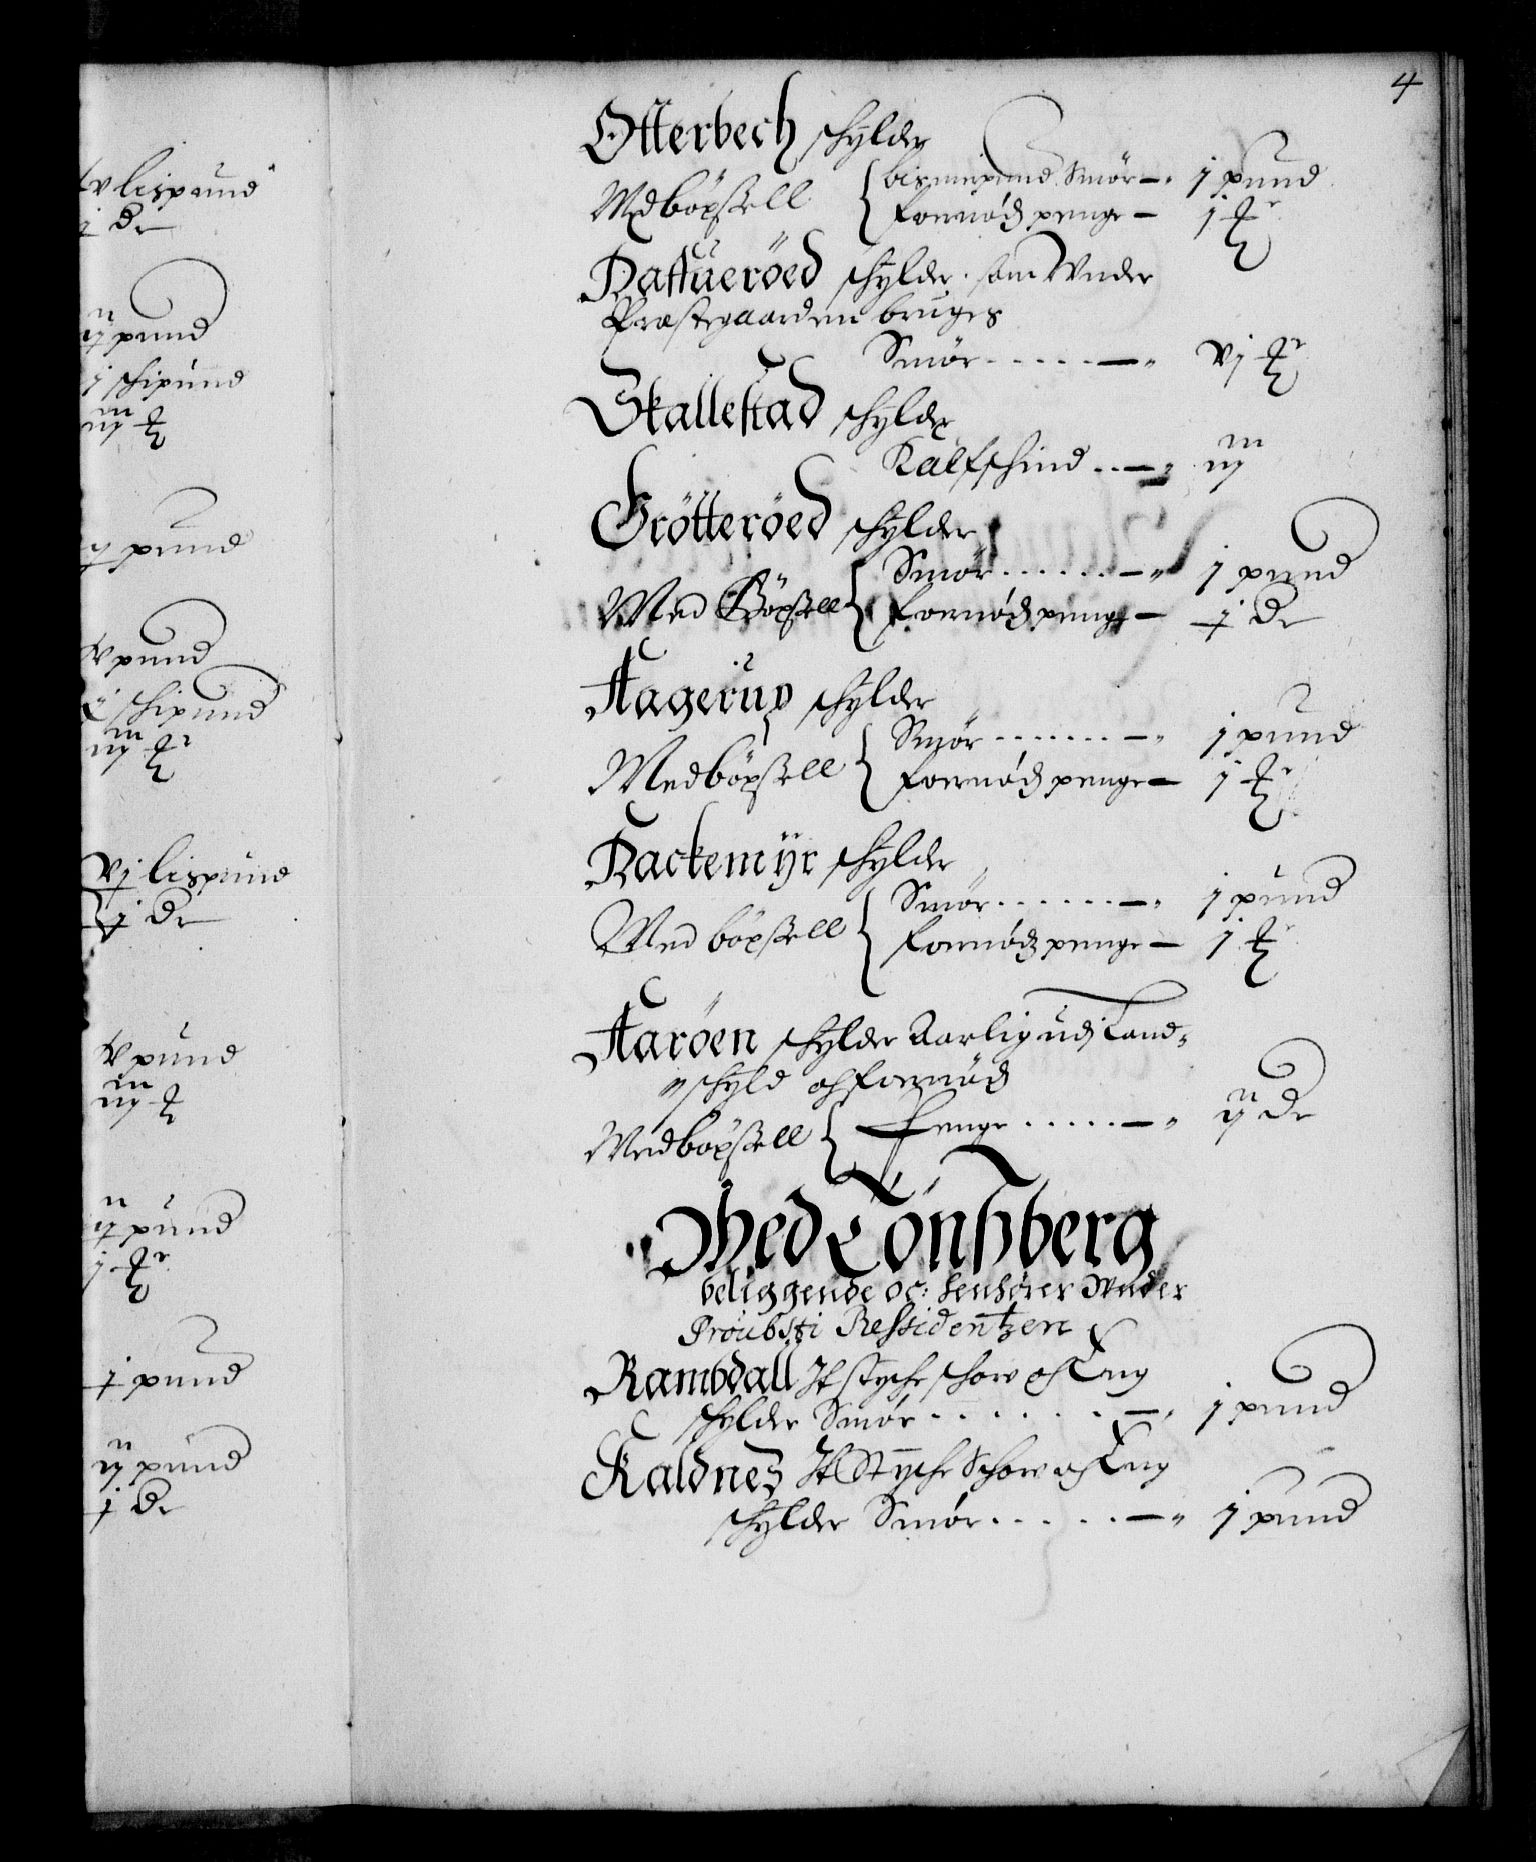 4
Otterbech schylder
Med böpsell { bismerpund Smör — 1 pund
fornödz penge — 1
Dattueröed schylder som Vnder
Præstegaarden bruges
Smör . . . . — vj
Skallestad schylder
Kalfschind . . — iij
Grötteröed schylder
Med Böpsell { Smör . . . . . — 1 pund
fornödz penge — j dr
Aagerup schylder
Med böpsell { Smör . . . . . — 1 pund
fornödz penge — 1
Dackemÿr schylder
Med böpsell { Smör . . . . . — 1 pund
fornödz penge — 1
Aaröen schylder Aarlig udj Land-
schyld oc fornöd
Med böpsell { Penge . . . . . — ij dr
Wed Tönsberg
beliggende oc: henhörer Vnder
Proubsti Ressidentzen
Rambdall It styche schow oc Eng
schylder Smör . . . . . — 1 pund
Kaldnes It Styche Schow oc Eng
schylder Smör . . . . . — 1 pund
v lispund
j dr
ij pund
j schipund
iij
j pund
v pund
schipund
iij
vj lispund
j dr
v pund
iij
ij pund
j
j pund
ij pund
j dr